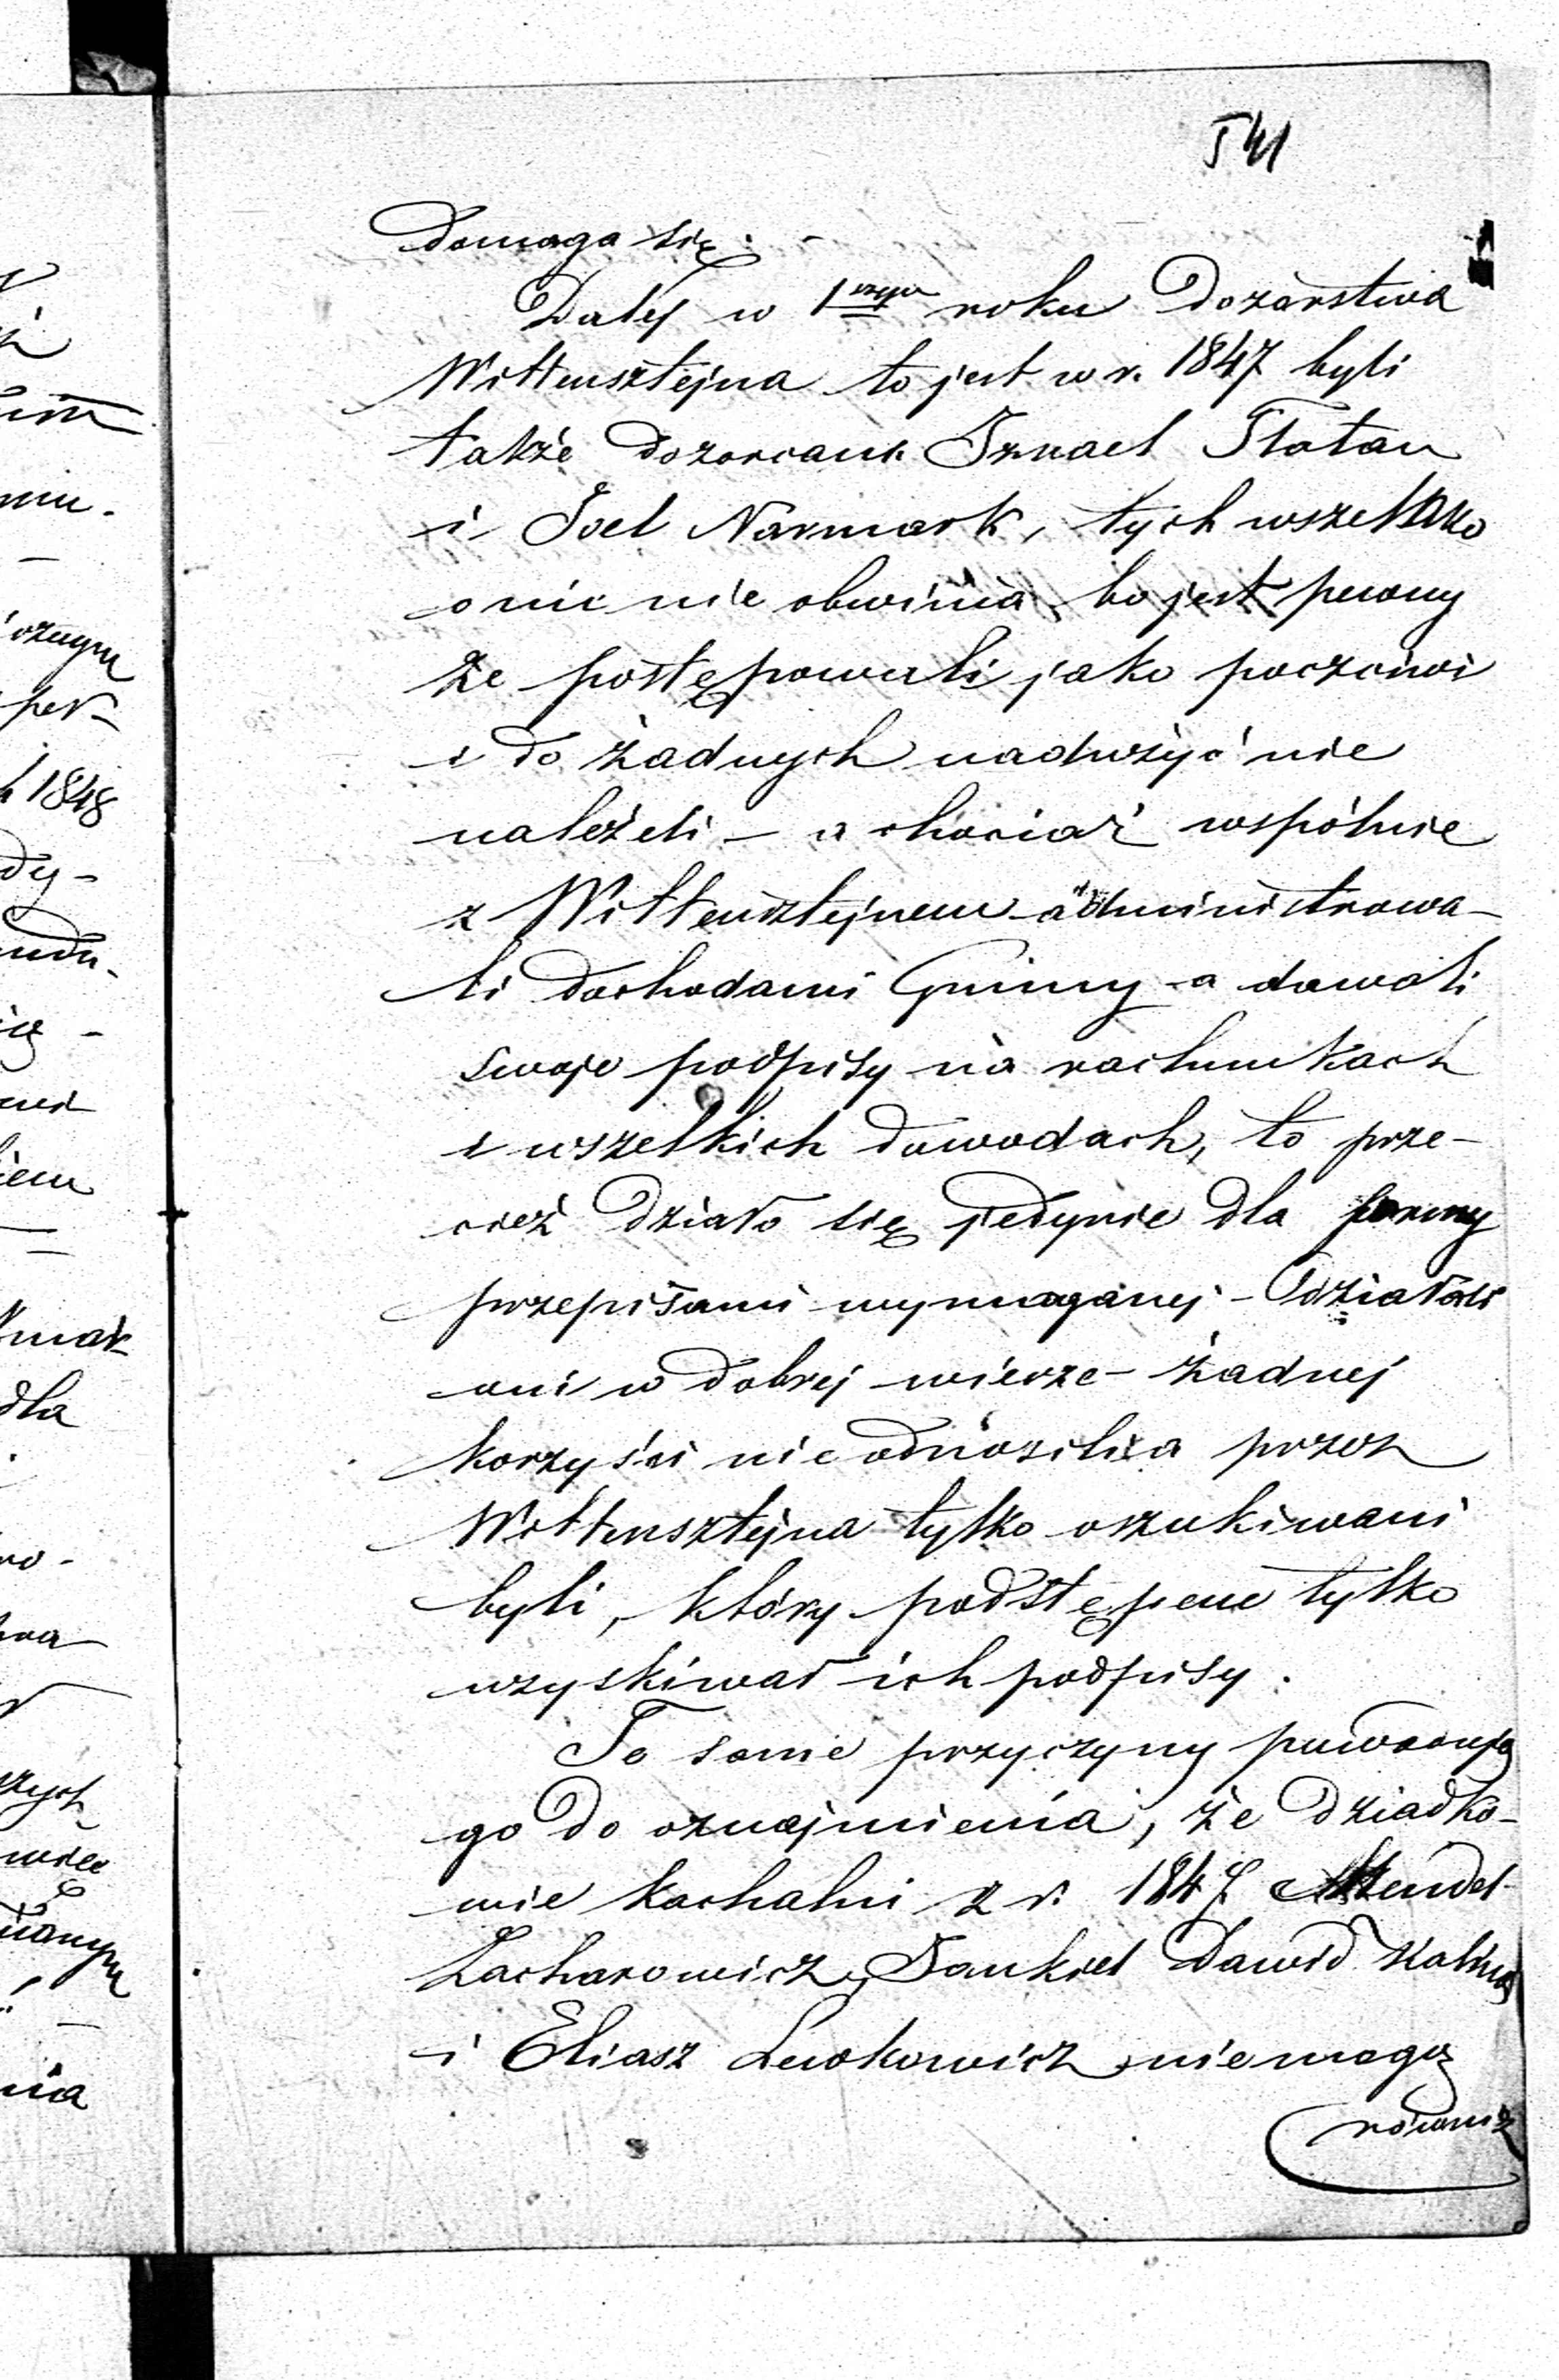 541
domaga się. -
Daléj w 1wszym roku Dozorstwa
Wittensztejna to jest w r. 1847 byli
także dozorcami Izrael Flatau
i Joel Narmark, tych wszelako
o nic nie obwinia bo jest pewny
że postępowali jako poczciwi
i do żadnych nadużyć nie
należeli - a chociaż wspólnie
z Wittensztejnem administrowa-
li dochodami Gminy a dawali
swoje podpisy na rachunkach
i wszelkich dowodach, to prze-
cież działo się jedynie dla formy
przepisami wymaganej - działali
oni w dobrej wierze - żadnej
korzyści nie odnosili a przez
Wittensztejna tylko oszukiwani
byli, który podstępem tylko
uzyskiwał ich podpisy.
Te same przyczyny powodują
go do oznajmienia, że dziadko-
wie kachalni z r. 1847 Mendel
Zacharowicz, Jankiel Dawid
i Eliasz Lewkowicz niemogą
również
1848
dla